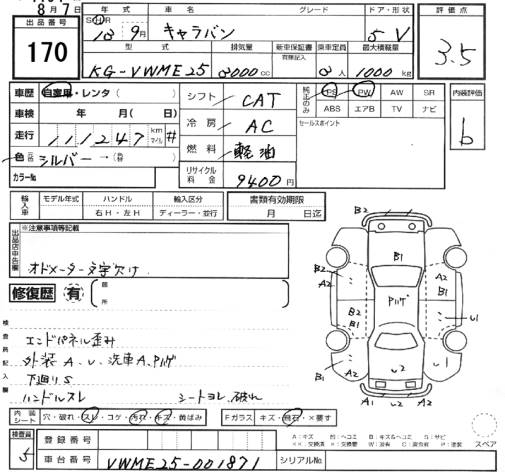 8月7日
出品番号
170
年式 車名 グレード ドア・形状
S・H・R
18 9月 キャラバン 5 V
型式 排気量 新車保証書 乗車定員 最大積載量
有無記入
KG-VWME25 3000cc 3人 1000kg
評価点
3.5
車歴 自家用・レンタ( )
車検 年 月( 日)
走行 111247 km マイル #
色 (元色) シルバー → (色替)
カラーNo.
シフト CAT
冷房 AC
燃料 軽油
リサイクル料金 9400円
純正のみ
PS PW AW SR
ABS エアB TV ナビ
セールスポイント
内装評価
b
輸入車 モデル年式 ハンドル 輸入区分
右H・左H ディーラー・並行
書類有効期限
月 日迄
出品店申告欄
※注意事項等記載
オドメーター文字欠け
修復歴 有 (箇所
検査員記入欄
エンドパネル歪み
外装A、U、洗車A、Pハゲ
下廻りS
ハンドルスレ シートヨレ、破れ
内装シート 穴・破れ・スレ・コゲ・汚れ・キズ・黄ばみ
Fガラス キズ・飛石・×要す
検査員
5
登録番号
車台番号 VWME25-001871
シリアルNo.
B2
B1
B2 A2
A2 B1
Pハゲ
B2 B1
U1
A2
B2 A2
U2
U1 A2
A1 U2 B2
A:キズ B:キズ&ヘコミ S:サビ
スペア